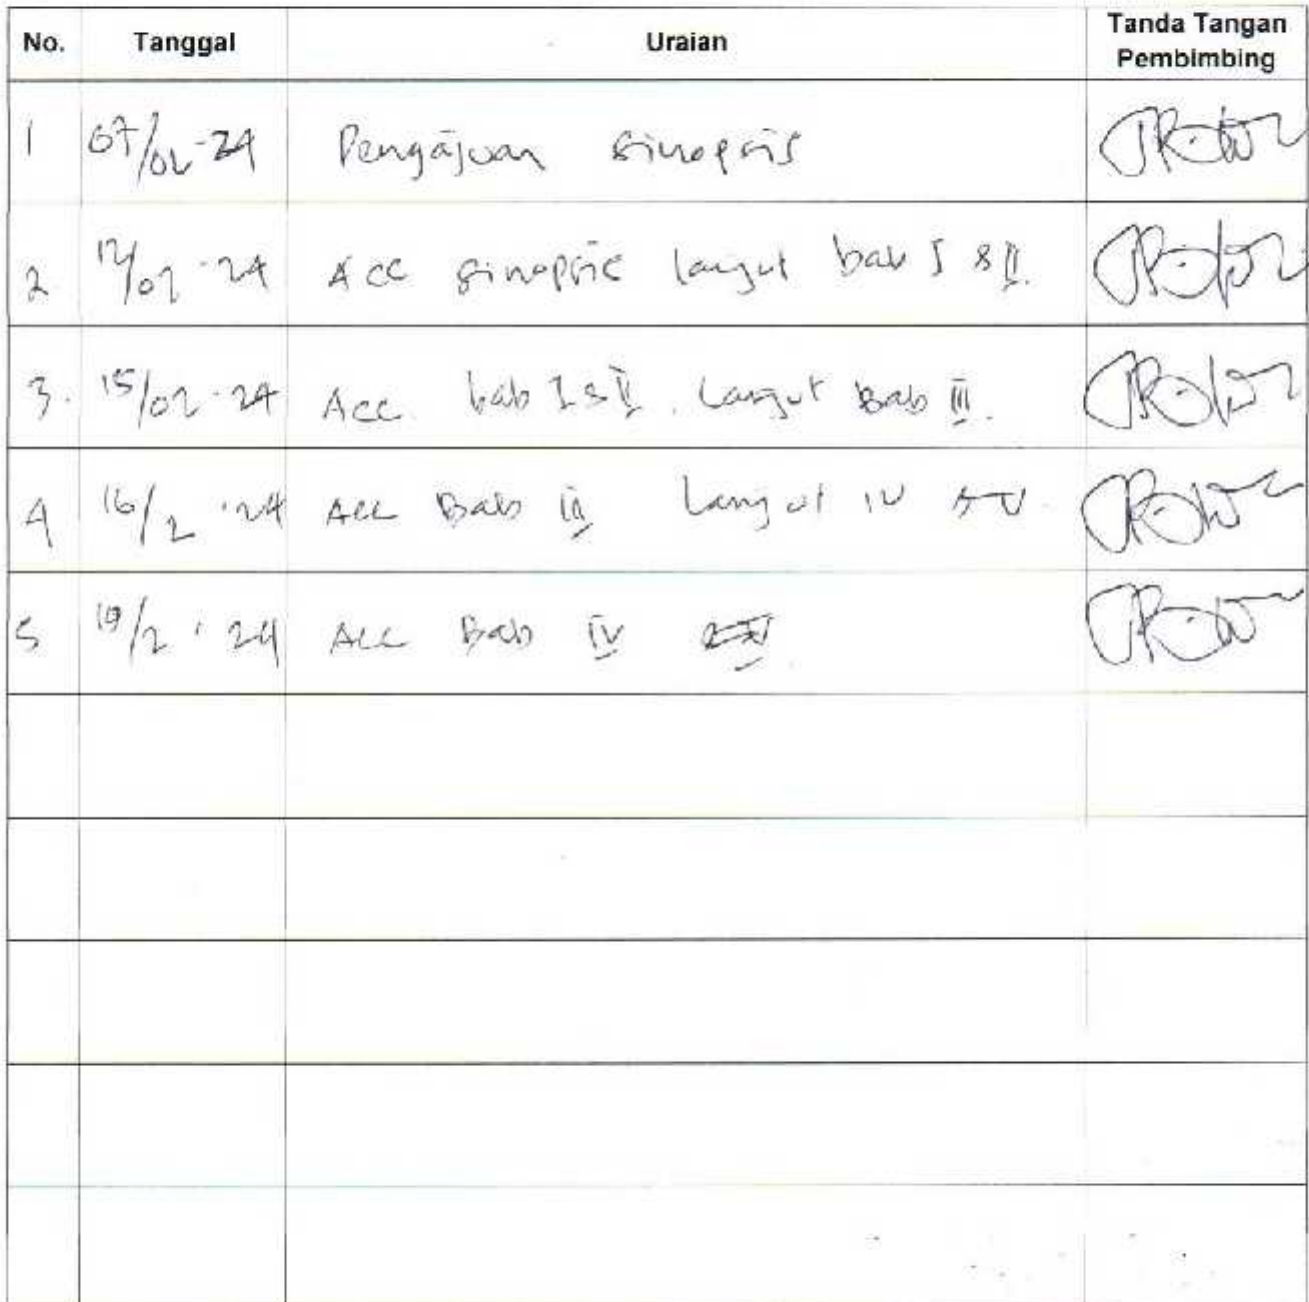 No. Tanggal Uraian Tanda Tangan Pembimbing
1 07/02-24 Pengajuan sinopsis
2 12/02-24 Acc sinopsis lanjut bab I & II.
3. 15/02-24 Acc. bab I & II. Lanjut Bab III.
4 16/2-24 Acc Bab III Lanjut IV & V.
5 19/2-24 Acc Bab IV